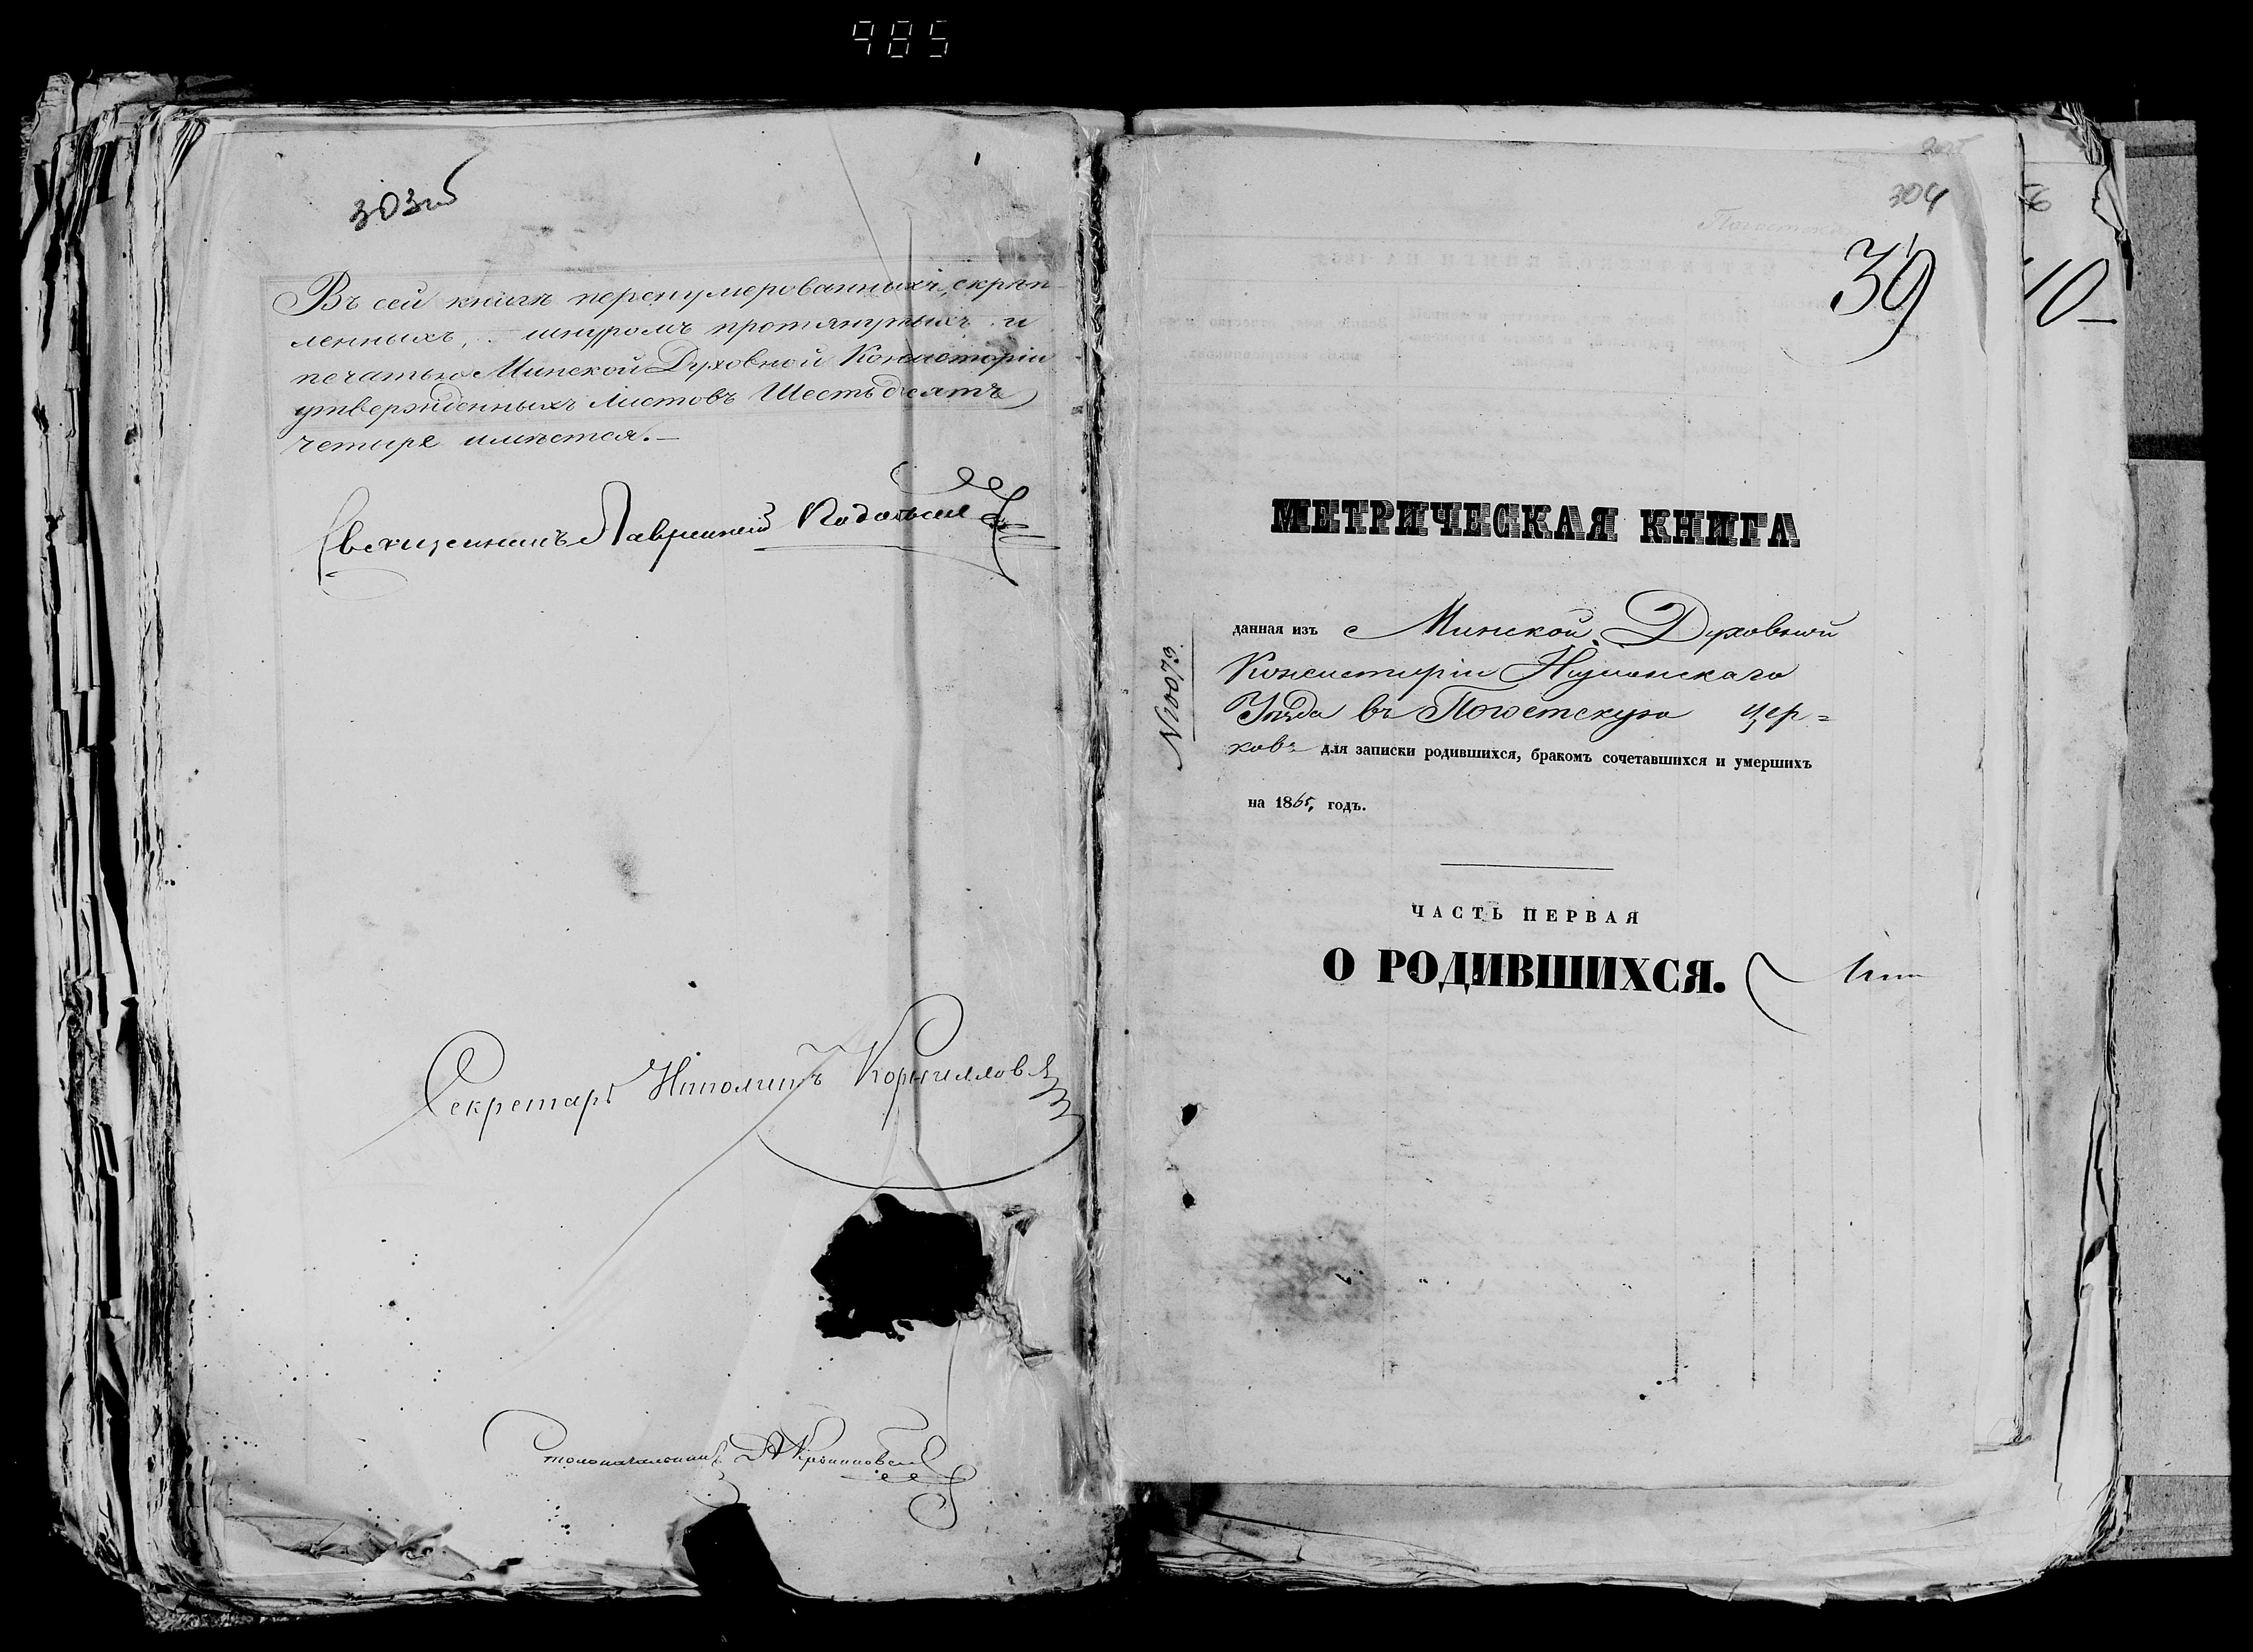 985
303об
Въ сей книгѣ перенумерованныхъ, скрѣп-
ленныхъ, шнуромъ протянутыхъ и
печатью Минской Духовной Консисторіи
утвержденныхъ листовъ Шестьдесятъ
четыре имѣется.—
Священникъ Лаврентій
Секретарь Ипполитъ Корнилловъ
Столоначальникъ
304
39
10
МЕТРИЧЕСКАЯ КНИГА
№ 10073
данная изъ Минской Духовной
Консисторіи Игуменскаго
Уѣзда въ Погостскую цер=
ковь для записки родившихся, бракомъ сочетавшихся и умершихъ
на 1865, годъ.
ЧАСТЬ ПЕРВАЯ
О РОДИВШИХСЯ.